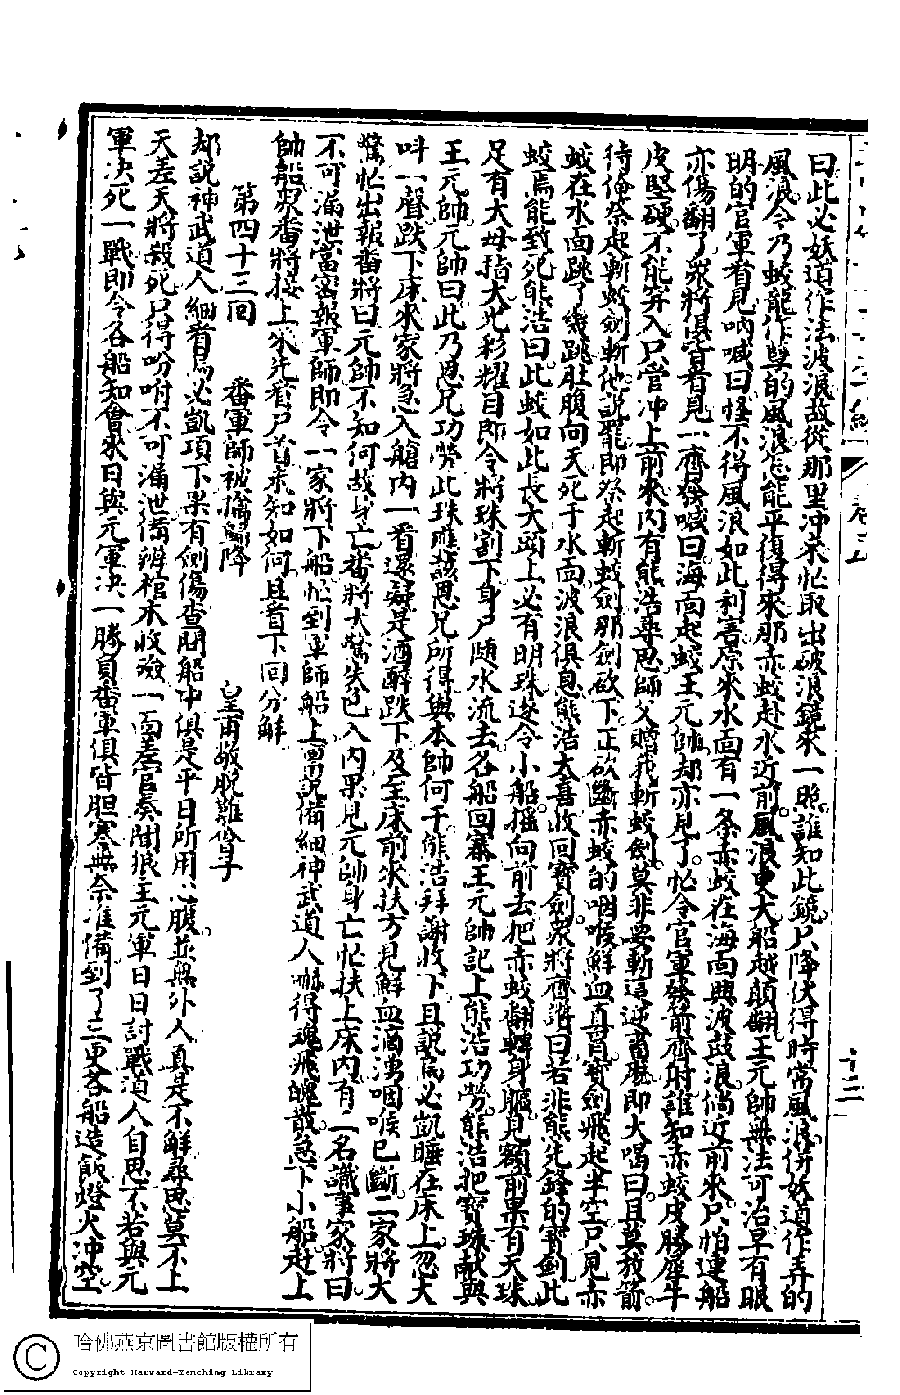 曰此必妖道作法波浪故從那里沖來忙取出破浪鏡來一照誰知此鏡只降伏得時常風浪併妖道作弄的
風浪今乃蛟龍作孽的風浪怎能平復得來那赤蛟赴水近前風浪更大船越顛翻王元帥無法可治早有眼
明的官軍看見吶喊曰怪不得風浪如此利害原來水面有一条赤蛟在海面興波鼓浪倘近前來只怕連船
亦傷翻了衆將俱皆看見一齊發喊曰海面起蛟王元帥却亦見了忙令官軍發箭齊射誰知赤蛟皮勝犀牛
皮堅硬不能弄入只管沖上前來內有熊浩尋思師父贈我斬蛟劍莫非要斬這逆畜麽即大喝曰且莫放箭
待俺祭起斬蛟劍斬他說罷即祭起斬蛟劍那劍欲下正砍斷赤蛟的咽喉鮮血直冒寶劍飛起半空只見赤
蛟在水面跳了幾跳肚腹向天死于水面波浪俱息熊浩大喜收回寶劍衆將齊讚曰若非熊先鋒的寶劍此
蛟焉能致死熊浩曰此蛟如此長大頭上必有明珠遂令小船搖向前去把赤蛟翻轉身軀見額前果有天珠
足有大毋指大光彩耀目即令將珠割下身尸随水流去各船回寨王元帥記上熊浩功勞熊浩把寶珠献與
王元帥元帥曰此乃恩兄功勞此珠應該恩兄所得與本帥何干熊浩拜謝收下且說馬必凱睡在床上忽大
呌一聲跌下床來家將急入艙內一看還疑是酒醉跌下及至床前來扶方見鮮血滴湧咽喉已斷二家將大
驚忙出報番將曰元帥不知何故身亡番將大驚失色入內果見元帥身亡忙扶上床內有一名識事家將曰
不可漏泄當密報軍師即令一家將下船忙到軍師船上畧說備細神武道人嚇得魂飛魄散急下小船赶上
帥船衆番將接上來先看尸首未知如何且看下回分解
第四十三回 番軍師被擒歸降 皇甫敬脫難會子
却說神武道人細看馬必凱項下果有劍傷查問船中俱是平日所用心腹並無外人真是不解尋思莫不上
天差天將殺死只得吩咐不可漏泄備辨棺木收殮一面差官奏聞狼主元軍日日討戰道人自思不若與元
軍决死一戰即令各船知會來日與元軍决一勝負番軍俱皆胆寒無奈准備到了三更各船造飯燈火沖空
十二
哈佛燕京圖書館版權所有
Copyright Harvard-Yenching Library